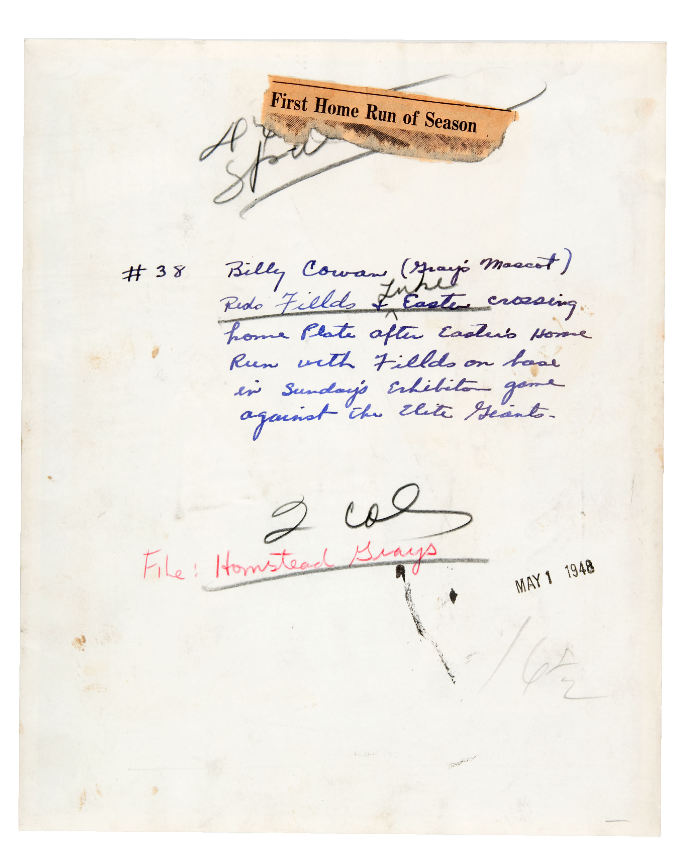 First Home Run of Season
# 38 Billy Cowan (Gray's Mascot)
Luke
Reds Fillds & Easter crossing
home Plate after Easter's Home
Run with Fillds on base
in Sunday's Exhibiton game
against the Elite Giants.
2 col
File: Homstead Grays
MAY 1 1948
16 1/2